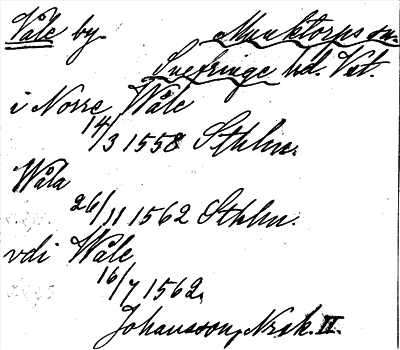 Våle by. Munktorps sn.
Snefringe hd. Vst.
i Norre Wåle
14/3 1558 Sthlm.
Wåla
26/11 1562 Sthlm.
vdi Wåle
16/7 1562.
Johansson, Nrsk. II.